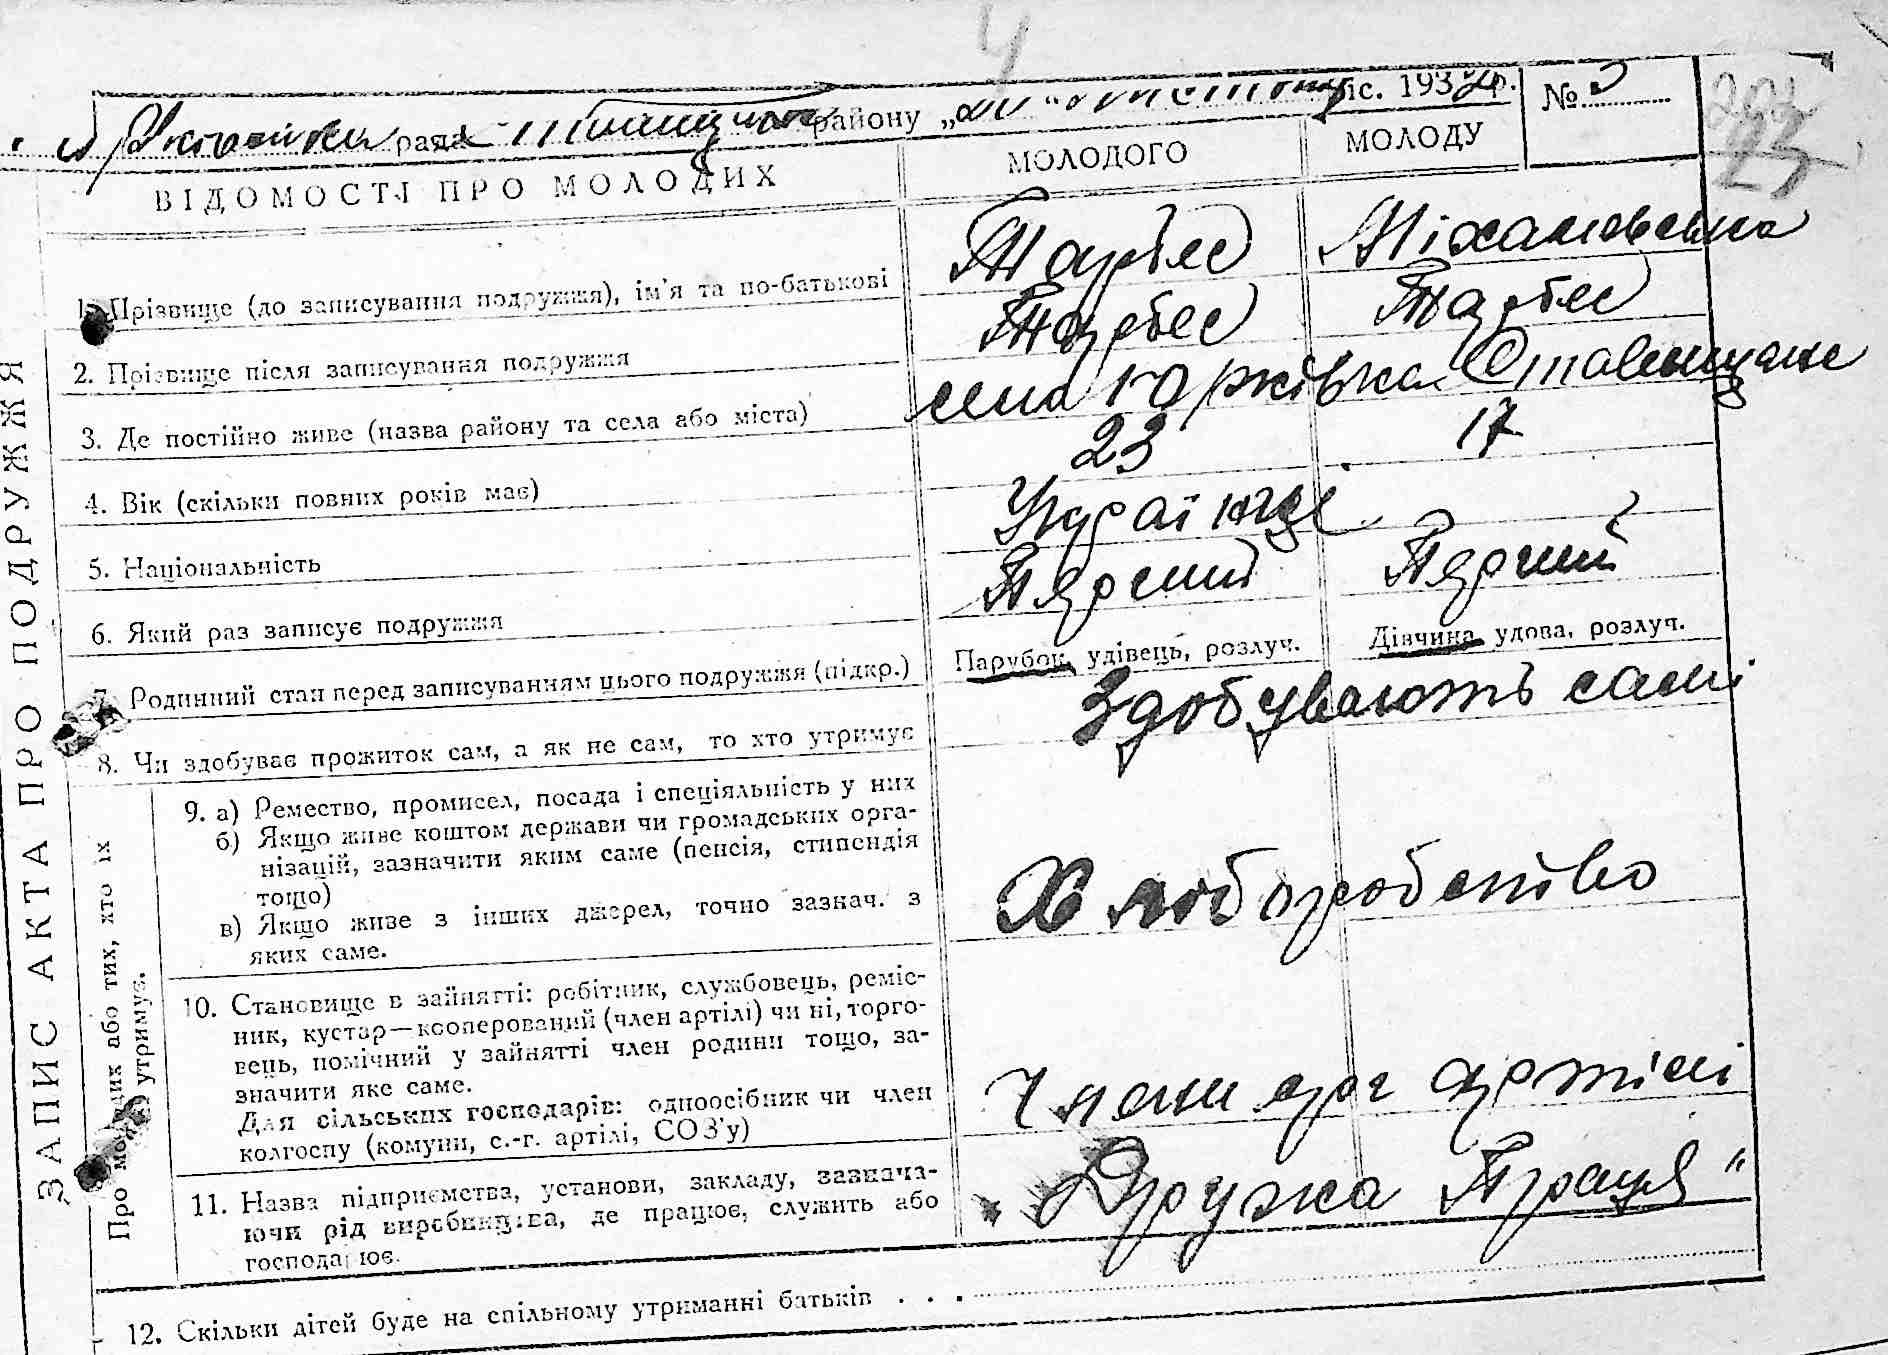 4
рада району міс. 193 р. № 3
23
ВІДОМОСТІ ПРО МОЛОДИХ МОЛОДОГО МОЛОДУ
ЗАПИС АКТА ПРО ПОДРУЖЖЯ
1. Прізвище (до записування подружжя), ім'я та по-батькові Міхаловська
2. Прізвище після записування подружжя
3. Де постійно живе (назва району та села або міста) села Юрківка Ставищане
4. Вік (скільки повних років має) 23 17
5. Національність Українці
6. Який раз записує подружжя Перший Перший
7. Родинний стан перед записуванням цього подружжя (підкр.) Парубок, удівець, розлуч. Дівчина удова, розлуч.
8. Чи здобуває прожиток сам, а як не сам, то хто утримує Здобувають самі
Про молодик або тих, хто їх утримує.
9. а) Ремество, промисел, посада і спеціяльність у них
б) Якщо живе коштом держави чи громадських орга-
нізацій, зазначити яким саме (пенсія, стипендія
тощо)
в) Якщо живе з інших джерел, точно зазнач. з
яких саме.
Хліборобство
10. Становище в зайнятті: робітник, службовець, реміс-
ник, кустар—кооперований (член артілі) чи ні, торго-
вець, помічний у зайнятті член родини тощо, за-
значити яке саме.
Для сільських господарів: одноосібник чи член
колгоспу (комуни, с.-г. артілі, СОЗ'у)
Члени артілі
11. Назва підприємства, установи, закладу, зазнача-
ючи рід виробництва, де працює, служить або
господарює.
„Дружна Праця"
12. Скільки дітей буде на спільному утриманні батьків . . .